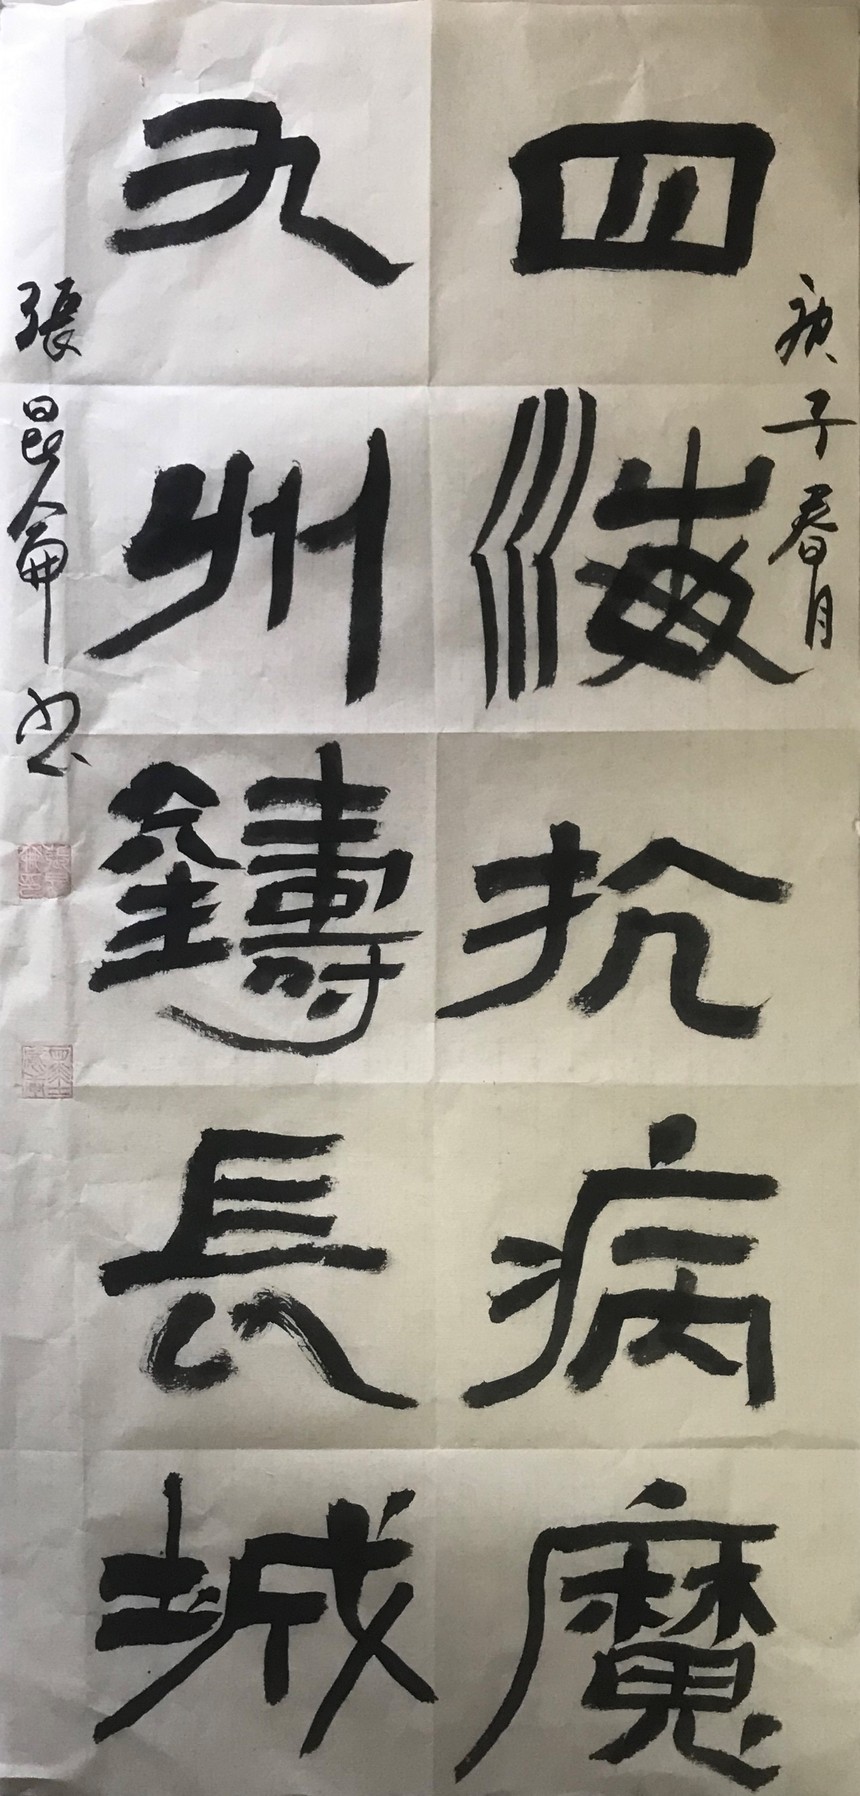 庚子春月
四海抗病魔
九州鑄長城
張昆侖书